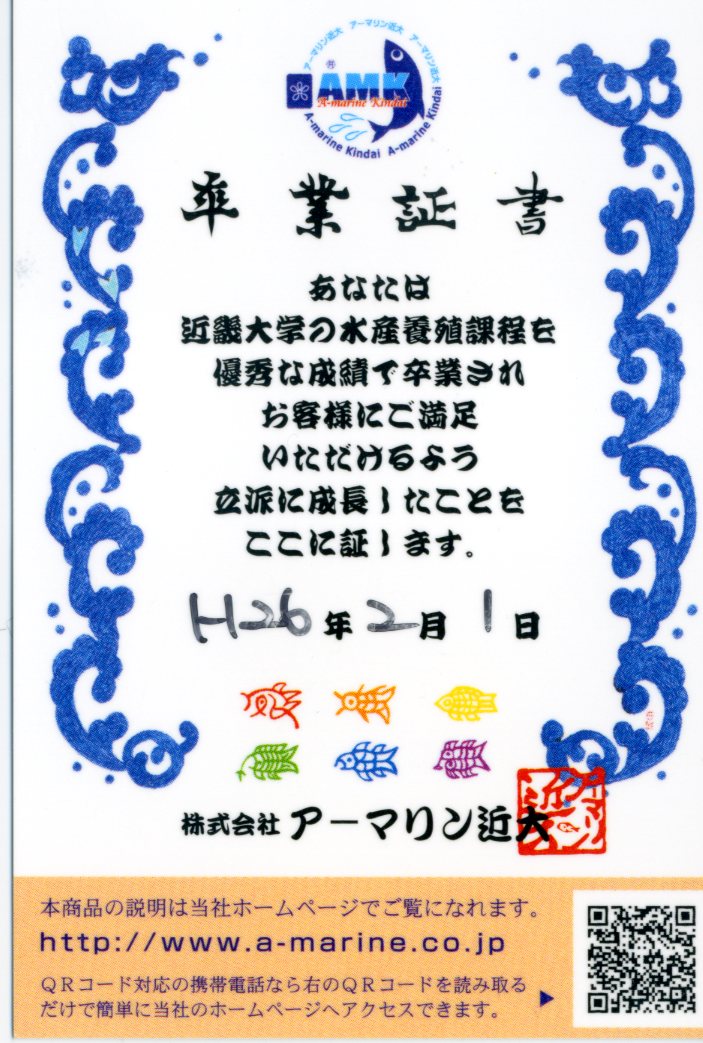 アーマリン近大 アーマリン近大 アーマリン近大
AMK
A-marine Kindai
A-marine Kindai A-marine Kindai
卒業証書
あなたは
近畿大学の水産養殖課程を
優秀な成績で卒業され
お客様にご満足
いただけるよう
立派に成長したことを
ここに証します。
H26年2月1日
株式会社 アーマリン近大
アーマリン近大
本商品の説明は当社ホームページでご覧になれます。
http://www.a-marine.co.jp
QRコード対応の携帯電話なら右のQRコードを読み取る
だけで簡単に当社のホームページへアクセスできます。